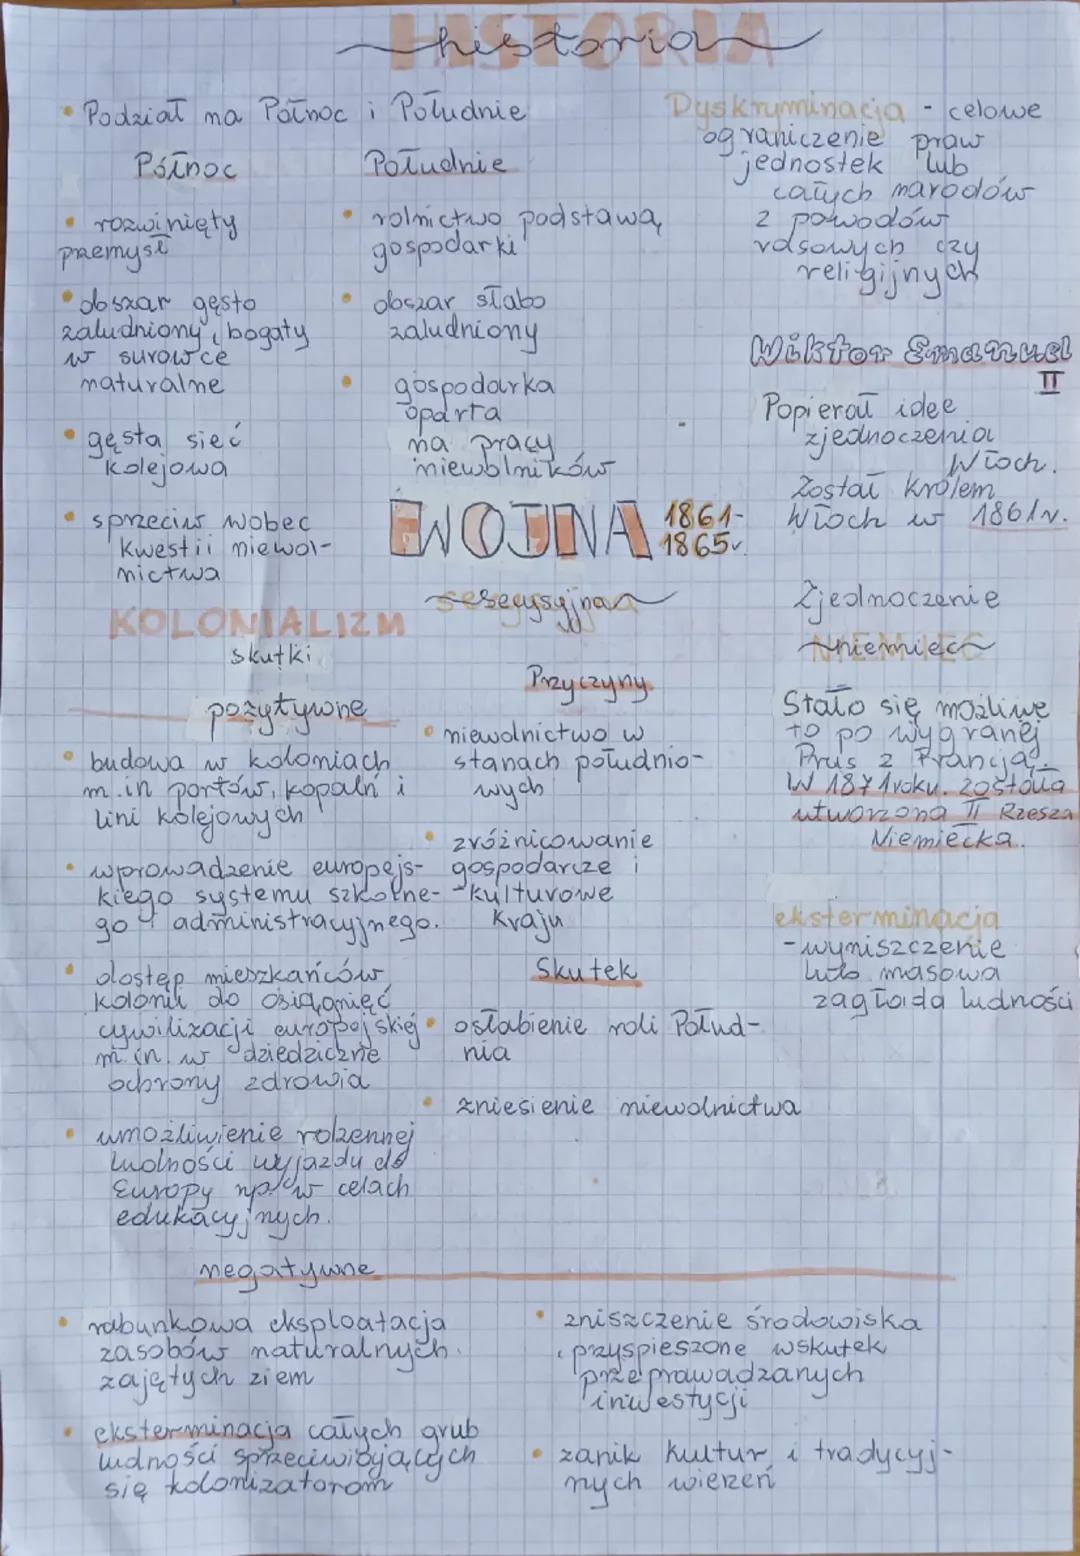 HISTORIA
historia
• Podział na Północ i Południe
Północ
• rozwinięty
przemysł
• obszar gęsto
zaludniony, bogaty
w surowce
naturalne
• gęsta sieć
kolejowa
• sprzeciw wobec
kwestii niewol-
nictwa
Południe
• rolnictwo podstawą
gospodarki
• obszar słabo
zaludniony
• gospodarka
oparta
na pracy
niewolników
WOJNA 1861-
1865r.
secesyjna
Dyskryminacja - celowe
ograniczenie praw
jednostek lub
całych narodów
z powodów
rasowych czy
religijnych
Wiktor Emanuel
II
Popierał idee
zjednoczenia
Włoch.
Został królem
Włoch w 1861r.
Zjednoczenie
NIEMIEC
niemiec
Stało się możliwe
to po wygranej
Prus z Francją.
W 1871roku. została
utworzona II Rzesza
Niemiecka.
eksterminacja
- wyniszczenie
lub masowa
zagłada ludności
KOLONIALIZM
skutki
pozytywne
• budowa w koloniach
m.in portów, kopalń i
lini kolejowych
• wprowadzenie europejs-
kiego systemu szkolne-
go i administracyjnego.
• dostęp mieszkańców
kolonii do osiągnięć
cywilizacji europejskiej
m.in. w dziedzicznie
ochrony zdrowia
• umożliwienie rdzennej
ludności wyjazdu do
Europy np. w celach
edukacyjnych.
Przyczyny
• niewolnictwo w
stanach południo-
wych
• zróżnicowanie
gospodarcze i
kulturowe
kraju
Skutek
• osłabienie roli Połud-
nia
• zniesienie niewolnictwa
negatywne
• rabunkowa eksploatacja
zasobów naturalnych
zajętych ziem
• eksterminacja całych grub
ludności sprzeciwiających
się kolonizatorom
• zniszczenie środowiska
przyspieszone wskutek
przeprawadzanych
inwestycji
• zanik kultur i tradycyj-
nych wierzeń